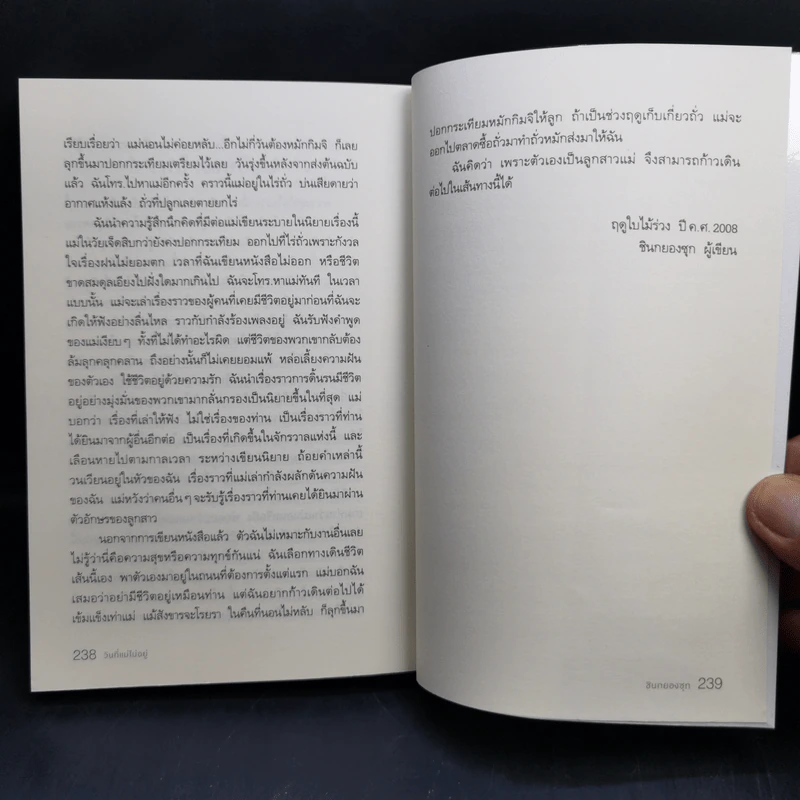 เรียบเรื่อยว่า แม่นอนไม่ค่อยหลับ...อีกไม่กี่วันต้องหมักกิมจิ ก็เลย
ลุกขึ้นมาปอกกระเทียมเตรียมไว้เลย วันรุ่งขึ้นหลังจากส่งต้นฉบับ
แล้ว ฉันโทร.ไปหาแม่อีกครั้ง คราวนี้แม่อยู่ในไร่ถั่ว บ่นเสียดายว่า
อากาศแห้งแล้ง ถั่วที่ปลูกเลยตายยกไร่
ฉันนำความรู้สึกนึกคิดที่มีต่อแม่เขียนระบายในนิยายเรื่องนี้
แม่ในวัยเจ็ดสิบกว่ายังคงปอกกระเทียม ออกไปที่ไร่ถั่วเพราะกังวล
ใจเรื่องฝนไม่ยอมตก เวลาที่ฉันเขียนหนังสือไม่ออก หรือชีวิต
ขาดสมดุลเอียงไปฝั่งใดมากเกินไป ฉันจะโทร.หาแม่ทันที ในเวลา
แบบนั้น แม่จะเล่าเรื่องราวของผู้คนที่เคยมีชีวิตอยู่มาก่อนที่ฉันจะ
เกิดให้ฟังอย่างลื่นไหล ราวกับกำลังร้องเพลงอยู่ ฉันรับฟังคำพูด
ของแม่เงียบๆ ทั้งที่ไม่ได้ทำอะไรผิด แต่ชีวิตของพวกเขากลับต้อง
ล้มลุกคลุกคลาน ถึงอย่างนั้นก็ไม่เคยยอมแพ้ หล่อเลี้ยงความฝัน
ของตัวเอง ใช้ชีวิตอยู่ด้วยความรัก ฉันนำเรื่องราวการดิ้นรนมีชีวิต
อยู่อย่างมุ่งมั่นของพวกเขามากลั่นกรองเป็นนิยายขึ้นในที่สุด แม่
บอกว่า เรื่องที่เล่าให้ฟัง ไม่ใช่เรื่องของท่าน เป็นเรื่องราวที่ท่าน
ได้ยินมาจากผู้อื่นอีกต่อ เป็นเรื่องที่เกิดขึ้นในจักรวาลแห่งนี้ และ
เลือนหายไปตามกาลเวลา ระหว่างเขียนนิยาย ถ้อยคำเหล่านี้
วนเวียนอยู่ในหัวของฉัน เรื่องราวที่แม่เล่ากำลังผลักดันความฝัน
ของฉัน แม่หวังว่าคนอื่นๆ จะรับรู้เรื่องราวที่ท่านเคยได้ยินมาผ่าน
ตัวอักษรของลูกสาว
นอกจากการเขียนหนังสือแล้ว ตัวฉันไม่เหมาะกับงานอื่นเลย
ไม่รู้ว่านี่คือความสุขหรือความทุกข์กันแน่ ฉันเลือกทางเดินชีวิต
เส้นนี้เอง พาตัวเองมาอยู่ในถนนที่ต้องการตั้งแต่แรก แม่บอกฉัน
เสมอว่าอย่ามีชีวิตอยู่เหมือนท่าน แต่ฉันอยากก้าวเดินต่อไปได้
เข้มแข็งเท่าแม่ แม้สังขารจะโรยรา ในคืนที่นอนไม่หลับ ก็ลุกขึ้นมา
238 วันที่แม่ไม่อยู่
ปอกกระเทียมหมักกิมจิให้ลูก ถ้าเป็นช่วงฤดูเก็บเกี่ยวถั่ว แม่จะ
ออกไปตลาดซื้อถั่วมาทำถั่วหมักส่งมาให้ฉัน
ฉันคิดว่า เพราะตัวเองเป็นลูกสาวแม่ จึงสามารถก้าวเดิน
ต่อไปในเส้นทางนี้ได้
ฤดูใบไม้ร่วง ปี ค.ศ. 2008
ชินกยองซุก ผู้เขียน
ชินกยองซุก 239